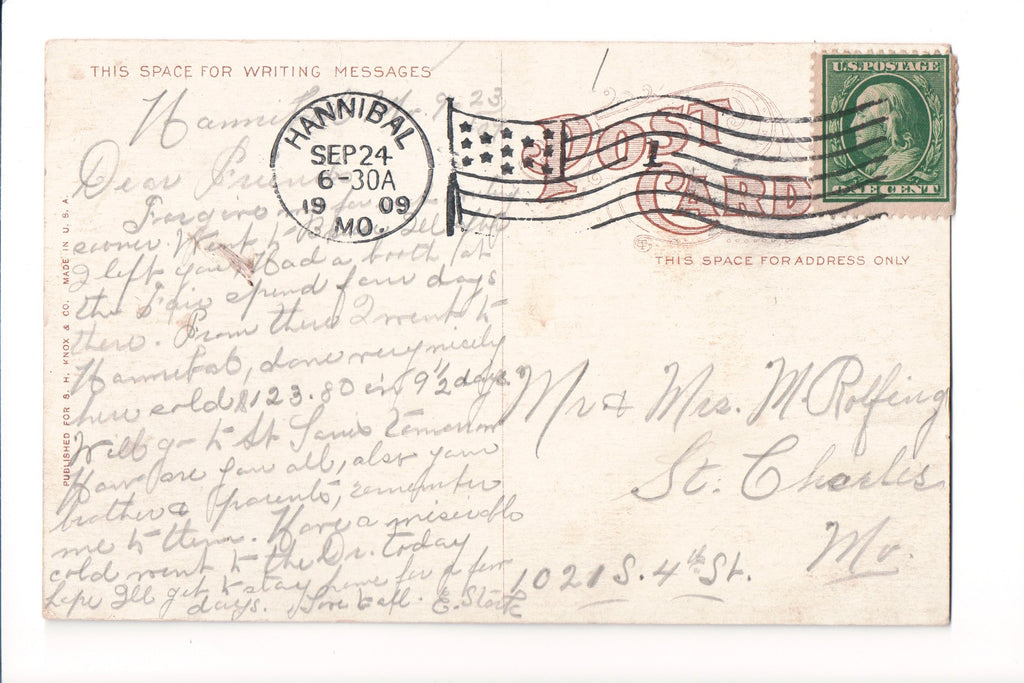 THIS SPACE FOR WRITING MESSAGES
Hanni 9, 23
Dear Frien
Forgive me for
sooner. Went to
I left you, Had a booth (at
the Fair spend four days
there. From there I went to
Hannibal, done very nicely
here sold $123.80 in 9 1/2 days.
Will go to St Louis tomorrow
How are you all, also your
brother & parents, remember
me to them. Have a miserable
cold went to the Dr. today
hope Ill get to stay home for a few
days. Love to all. E. Stork
HANNIBAL
SEP 24
6-30A
19 09
MO.
1
POST CARD
U.S. POSTAGE
ONE CENT
THIS SPACE FOR ADDRESS ONLY
Mr & Mrs. M. Rolfing
St. Charles
Mo.
1021 S. 4th St.
PUBLISHED FOR S. H. KNOX & CO. MADE IN U. S. A.